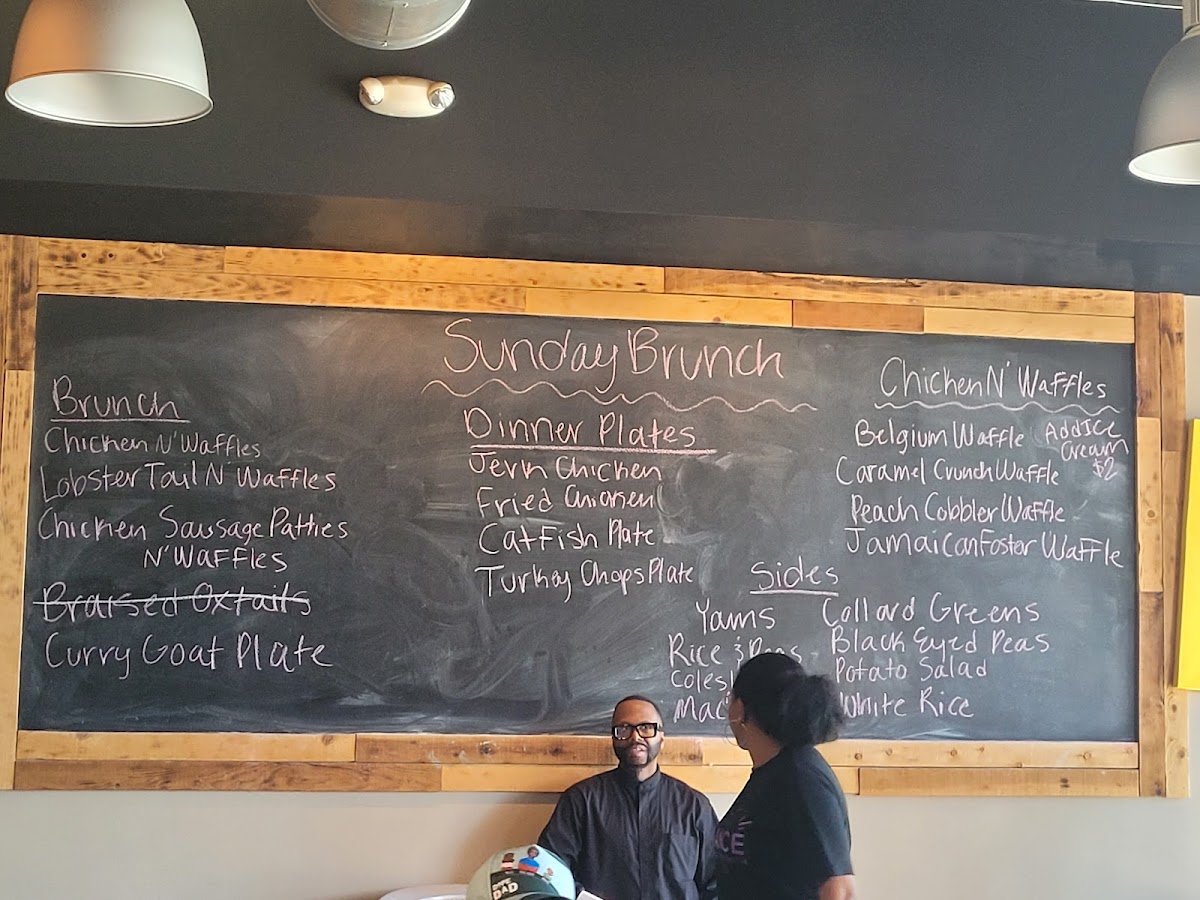 Sunday Brunch
Brunch
Chicken N' Waffles
Lobster Tail N' Waffles
Chicken Sausage Patties
N' Waffles
Braised Oxtails
Curry Goat Plate
Dinner Plates
Jerk Chicken
Fried Chicken
Catfish Plate
Turkey Chops Plate
Chicken N' Waffles
Belgium Waffle
Caramel Crunch Waffle
Peach Cobbler Waffle
Jamaican Foster Waffle
Add Ice
Cream
$2
Sides
Yams
Rice & Peas
Coles
Mac
Collard Greens
Black Eyed Peas
Potato Salad
White Rice
DAD